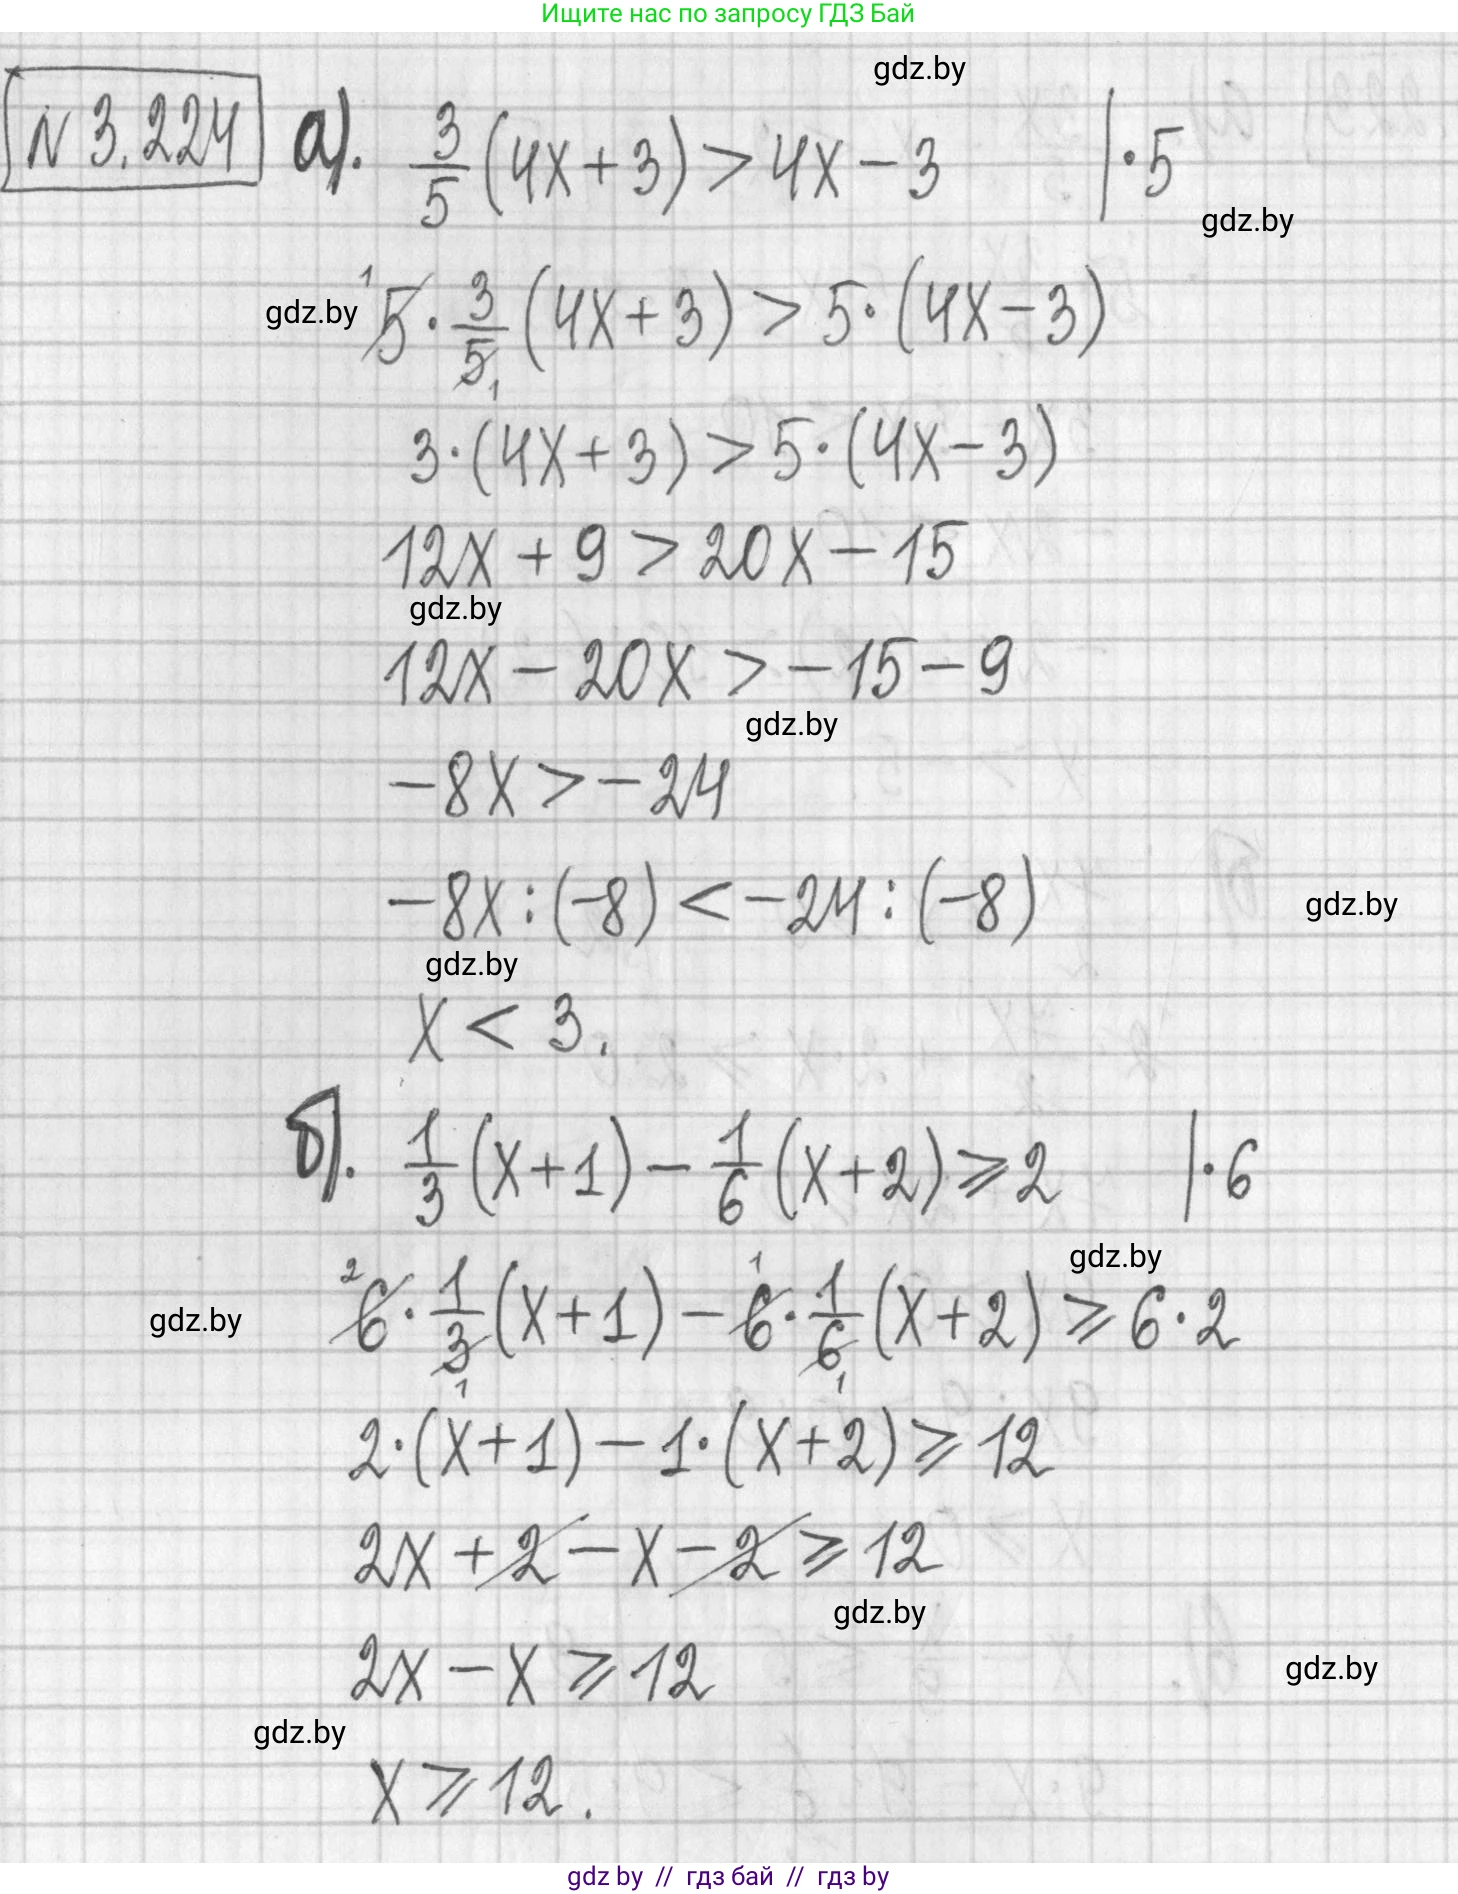 Ищите нас по запросу ГДЗ Бай
gdz.by
N 3.224 а). 3/5 (4x + 3) > 4x - 3 | · 5
gdz.by
gdz.by
1 5 · 3/5 1 (4x + 3) > 5 · (4x - 3)
3 · (4x + 3) > 5 · (4x - 3)
12x + 9 > 20x - 15
gdz.by
12x - 20x > - 15 - 9
gdz.by
-8x > -24
-8x : (-8) < -24 : (-8)
gdz.by
gdz.by
x < 3.
б). 1/3 (x + 1) - 1/6 (x + 2) ⩾ 2 | · 6
gdz.by
gdz.by
2 6 · 1/3 1 (x + 1) - 1 6 · 1/6 1 (x + 2) ⩾ 6 · 2
2 · (x + 1) - 1 · (x + 2) ⩾ 12
2x + 2 - x - 2 ⩾ 12
gdz.by
2x - x ⩾ 12
gdz.by
gdz.by
x ⩾ 12.
gdz by // гдз бай // гдз by